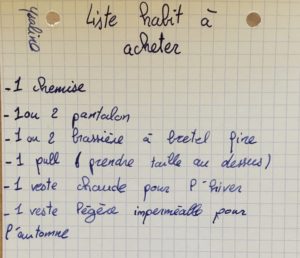 Liste habit à
acheter
-1 chemise
-1 ou 2 pantalon
-1 ou 2 brassière à bretel fine
-1 pull ( prendre taille au dessus)
-1 veste chaude pour l'hiver
-1 veste légère imperméable pour
l'automne